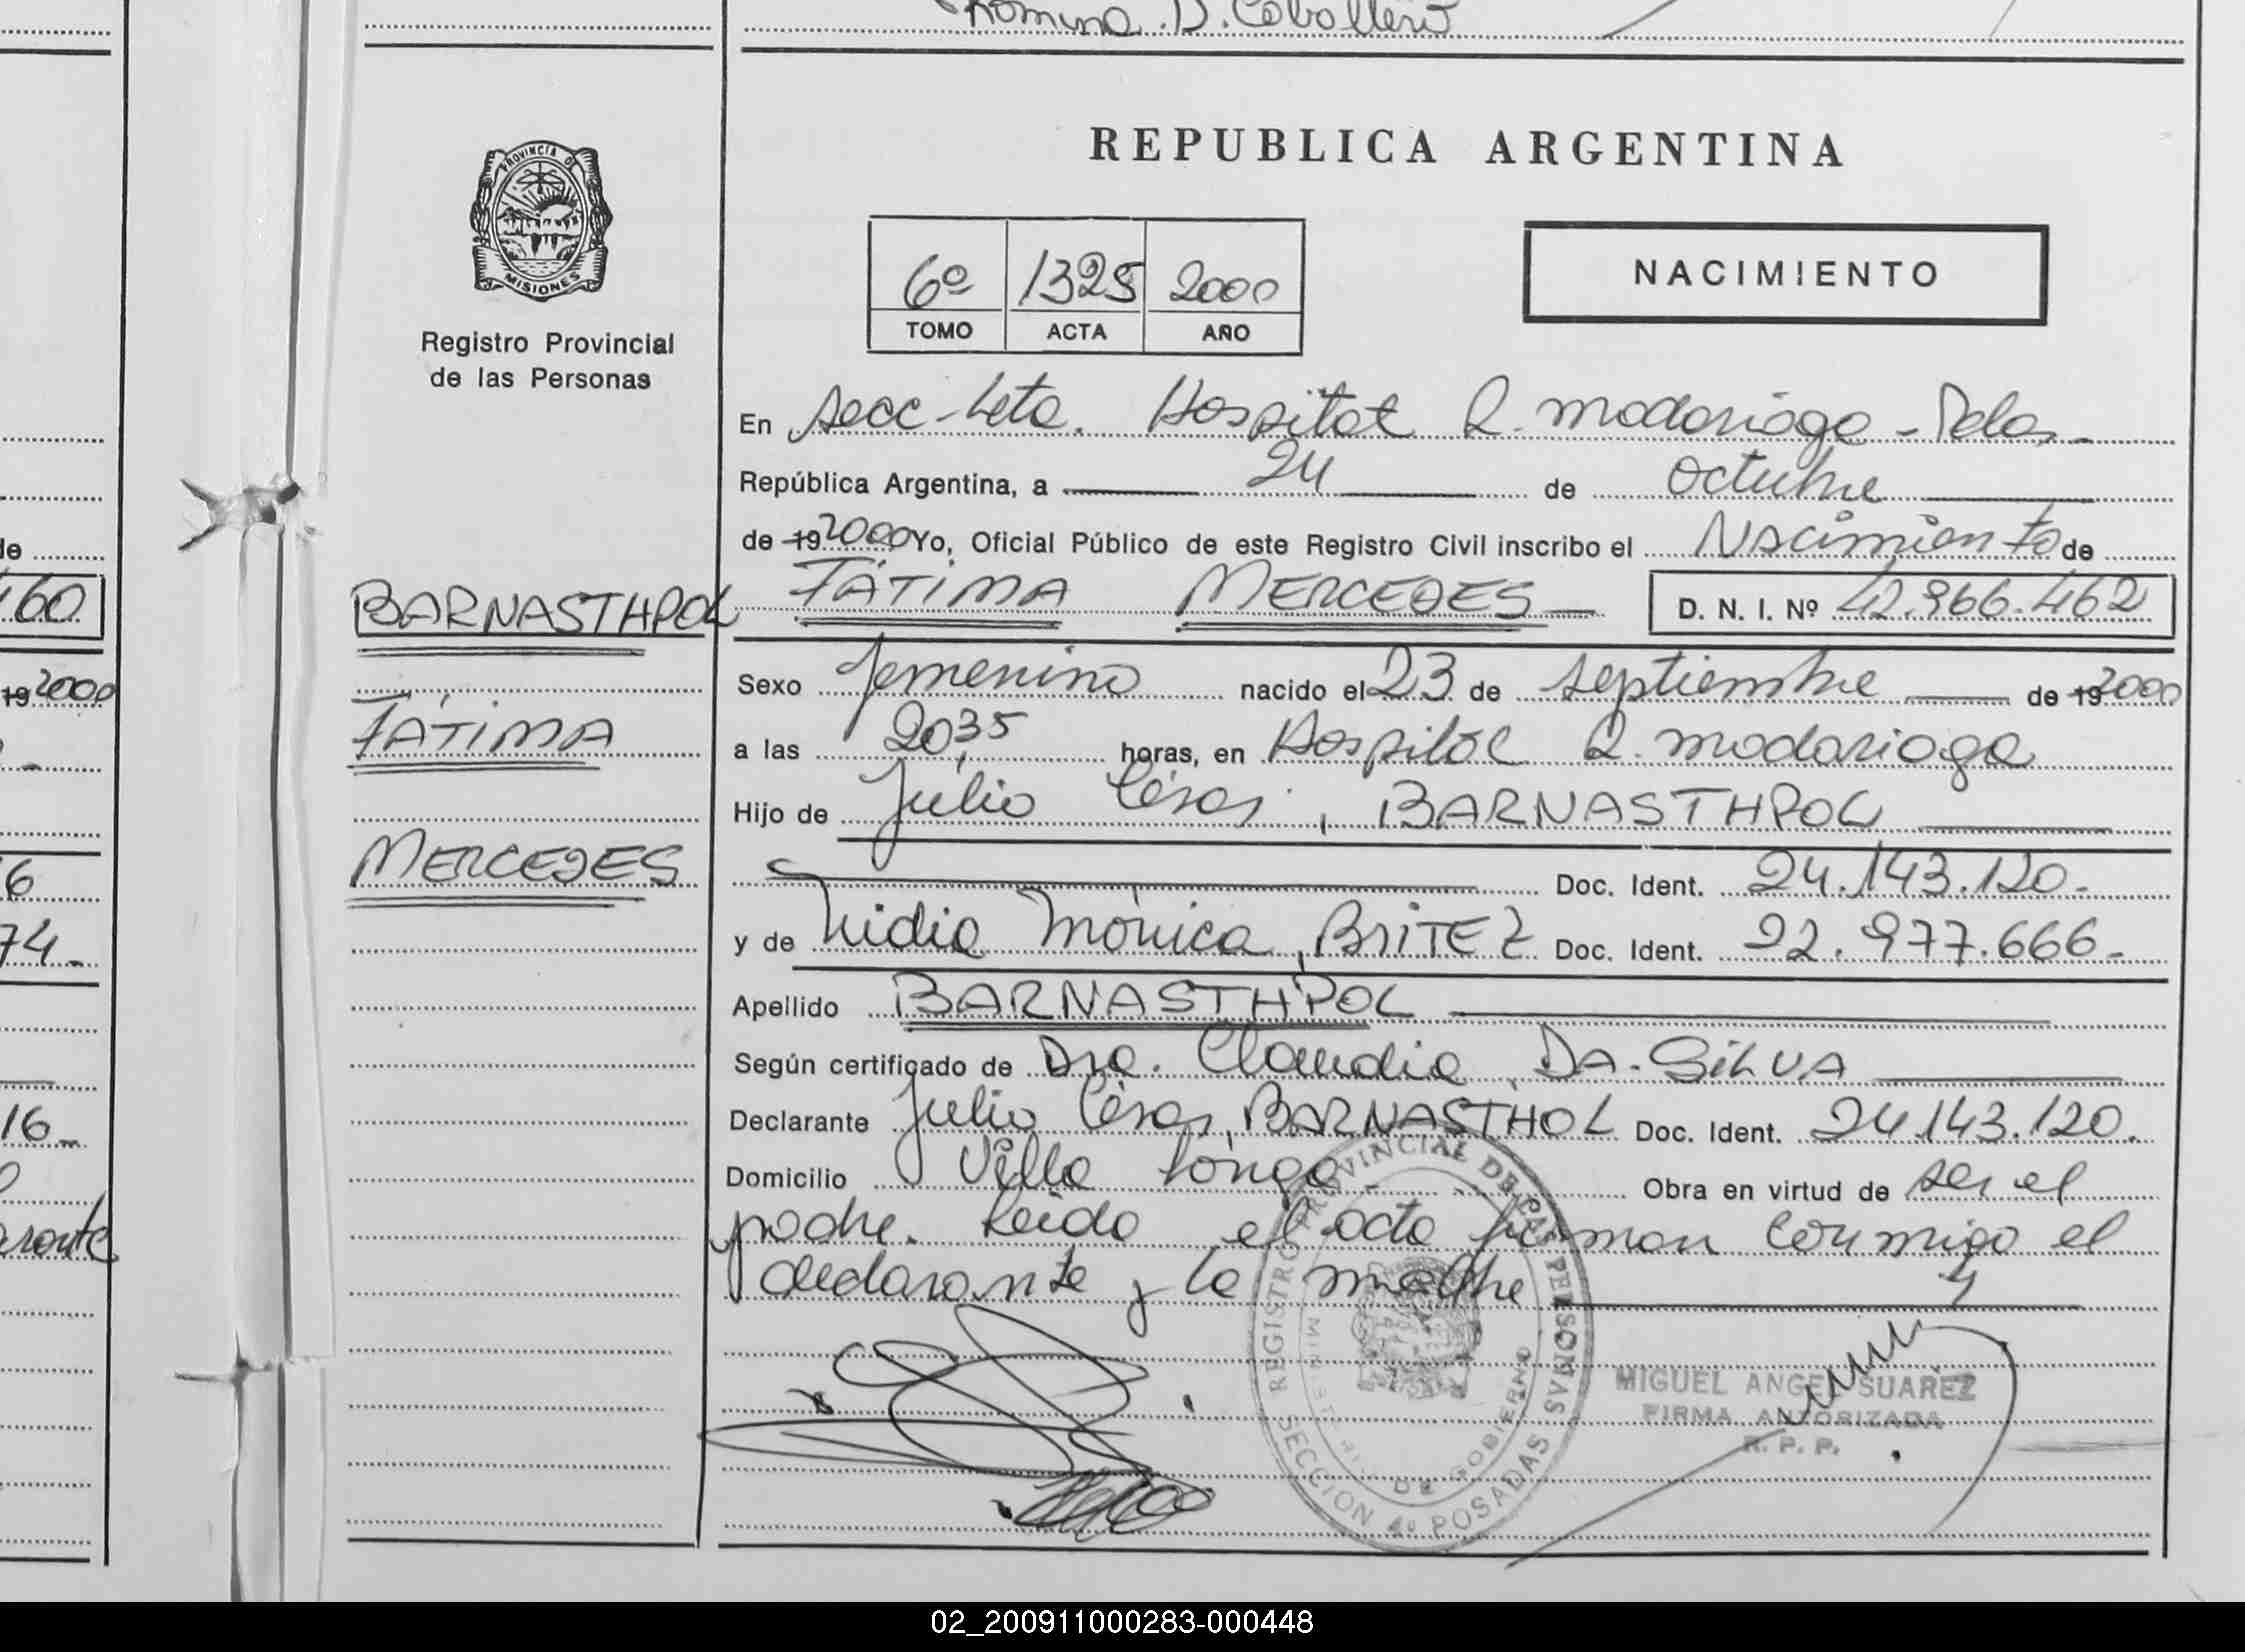 Romina D. Caballero
PROVINCIA D
MISIONES
Registro Provincial
de las Personas
REPUBLICA ARGENTINA
6º 1325 2000
TOMO ACTA AÑO
NACIMIENTO
En secc-4ta. Hospital R. Madariaga - Pdas-
República Argentina, a 24 de octubre
de 19 2000 Yo, Oficial Público de este Registro Civil inscribo el Nacimiento de
FÁTIMA MERCEDES D. N. I. Nº 42.966.462
BARNASTHPOL
FÁTIMA
MERCEDES
Sexo femenino nacido el 23 de septiembre de 19 2000
a las 20,35 horas, en Hospital R. Madariaga
Hijo de Julio César, BARNASTHPOL
Doc. Ident. 24.143.120.-
y de Nidia Mónica, BRITEZ Doc. Ident. 22.977.666.-
Apellido BARNASTHPOL
Según certificado de Dra. Claudia, DA-SILVA
Declarante Julio César, BARNASTHOL Doc. Ident. 24.143.120.
Domicilio Villa Longa- Obra en virtud de ser el
padre. Leida el acta firman conmigo el
declarante y la madre
REGISTRO PROVINCIAL DE LAS PERSONAS
MINISTERIO DE GOBIERNO
SECCION 4º POSADAS
MIGUEL ANGEL SUAREZ
FIRMA AUTORIZADA
R. P. P.
de
160
19 2000
6
74.-
16-
arante
02_200911000283-000448